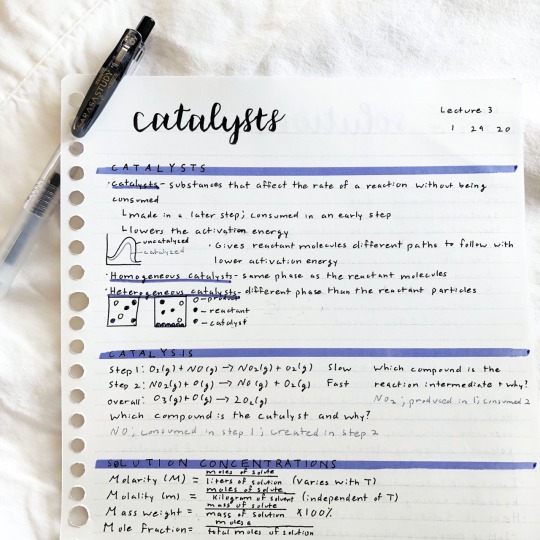 SARASA STUDY
catalysts
Lecture 3
1 29 20
CATALYSTS
· catalysts - substances that affect the rate of a reaction without being
consumed
↳ made in a later step; consumed in an early step
↳ lowers the activation energy
uncatalyzed
catalyzed
· Gives reactant molecules different paths to follow with
lower activation energy
· Homogeneous catalysts - same phase as the reactant molecules
· Heterogeneous catalysts - different phase than the reactant particles
○ - product
• - reactant
• - catalyst
CATALYSIS
Step 1: O₃(g) + NO(g) → NO₂(g) + O₂(g) Slow
Step 2: NO₂(g) + O(g) → NO(g) + O₂(g) Fast
overall: O₃(g) + O(g) → 2O₂(g)
which compound is the
reaction intermediate + why?
NO₂; produced in 1; consumed 2
Which compound is the catalyst and why?
NO; consumed in step 1; created in step 2
SOLUTION CONCENTRATIONS
Molarity (M) = moles of solute / liters of solution (varies with T)
Molality (m) = moles of solute / kilogram of solvent (independent of T)
Mass weight = mass of solute / mass of solution × 100%
Mole fraction = moles a / total moles of solution